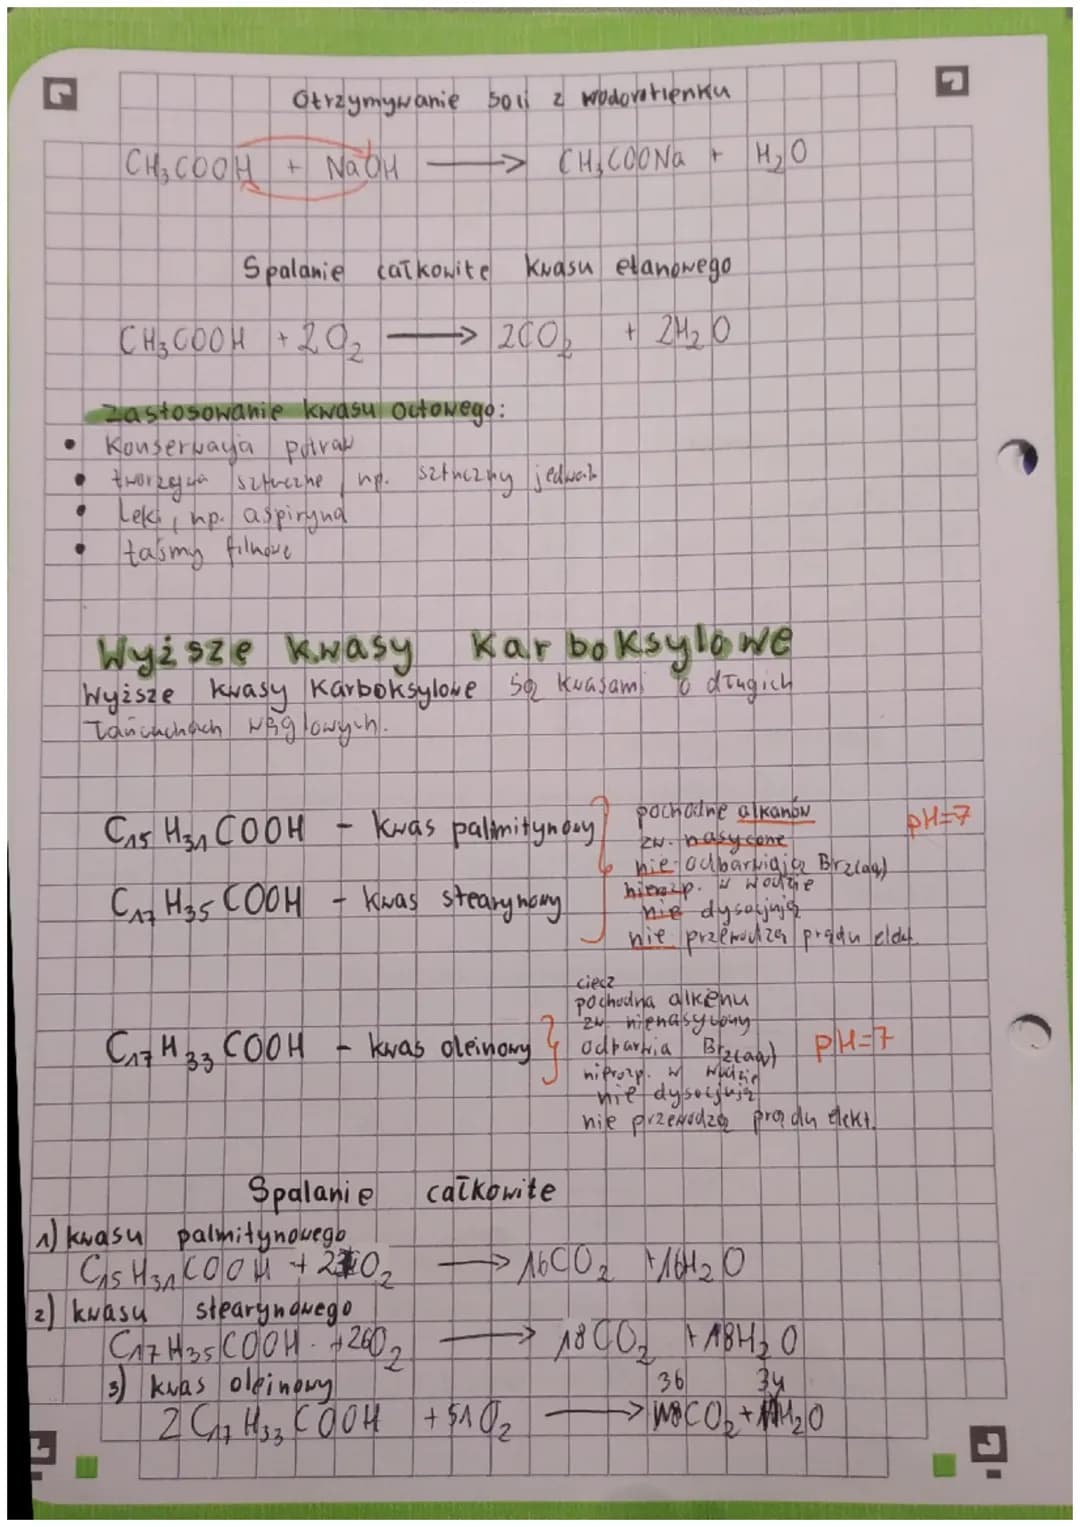 Otrzymywanie soli z wodorotlenku
CH3COOH + NaOH ⟶ CH3COONa + H2O
Spalanie całkowite kwasu etanowego
CH3COOH + 2O2 ⟶ 2CO2 + 2H2O
Zastosowanie kwasu octowego:
• Konserwacja potraw
• tworzywa sztuczne np. sztuczny jedwab
• Leki, np. aspiryna
• taśmy filmowe
Wyższe kwasy Karboksylowe
Wyższe kwasy Karboksylowe są kwasami o długich
łańcuchach węglowych.
pochodne alkanów pH=7
C15H31COOH - kwas palmitynowy zw. nasycone
nie odbarwiają Br2(aq)
nierozp. w wodzie
C17H35COOH - kwas stearynowy nie dysocjują
nie przewodzą prądu elekt.
ciecz
pochodna alkenu
zw. nienasycony
C17H33COOH - kwas oleinowy odbarwia Br2(aq) pH=7
nierozp. w wodzie
nie dysocjują
nie przewodzą prądu elekt.
Spalanie całkowite
1) kwasu palmitynowego
C15H31COOH + 23O2 ⟶ 16CO2 + 16H2O
2) kwasu stearynowego
C17H35COOH + 26O2 ⟶ 18CO2 + 18H2O
3) kwas oleinowy 36 34
2C17H33COOH + 51O2 ⟶ CO2 + H2O